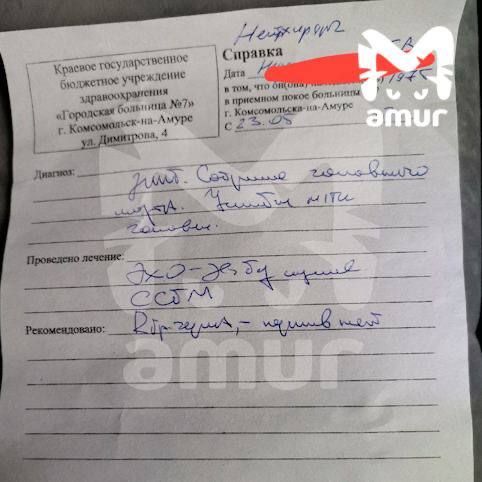 Нейрохирург
Краевое государственное
бюджетное учреждение
здравоохранения
«Городская больница №7»
г. Комсомольск-на-Амуре
ул. Димитрова, 4
Справка
Дата
1975
в том, что он(она)
в приемном покое больницы
г. Комсомольск-на-Амуре
С 23.05
amur
Диагноз: ЗЧМТ. Сотрясение головного
мозга. Ушибы
головы.
Проведено лечение:
ЭХО-
ССБМ
Рекомендовано:
amur